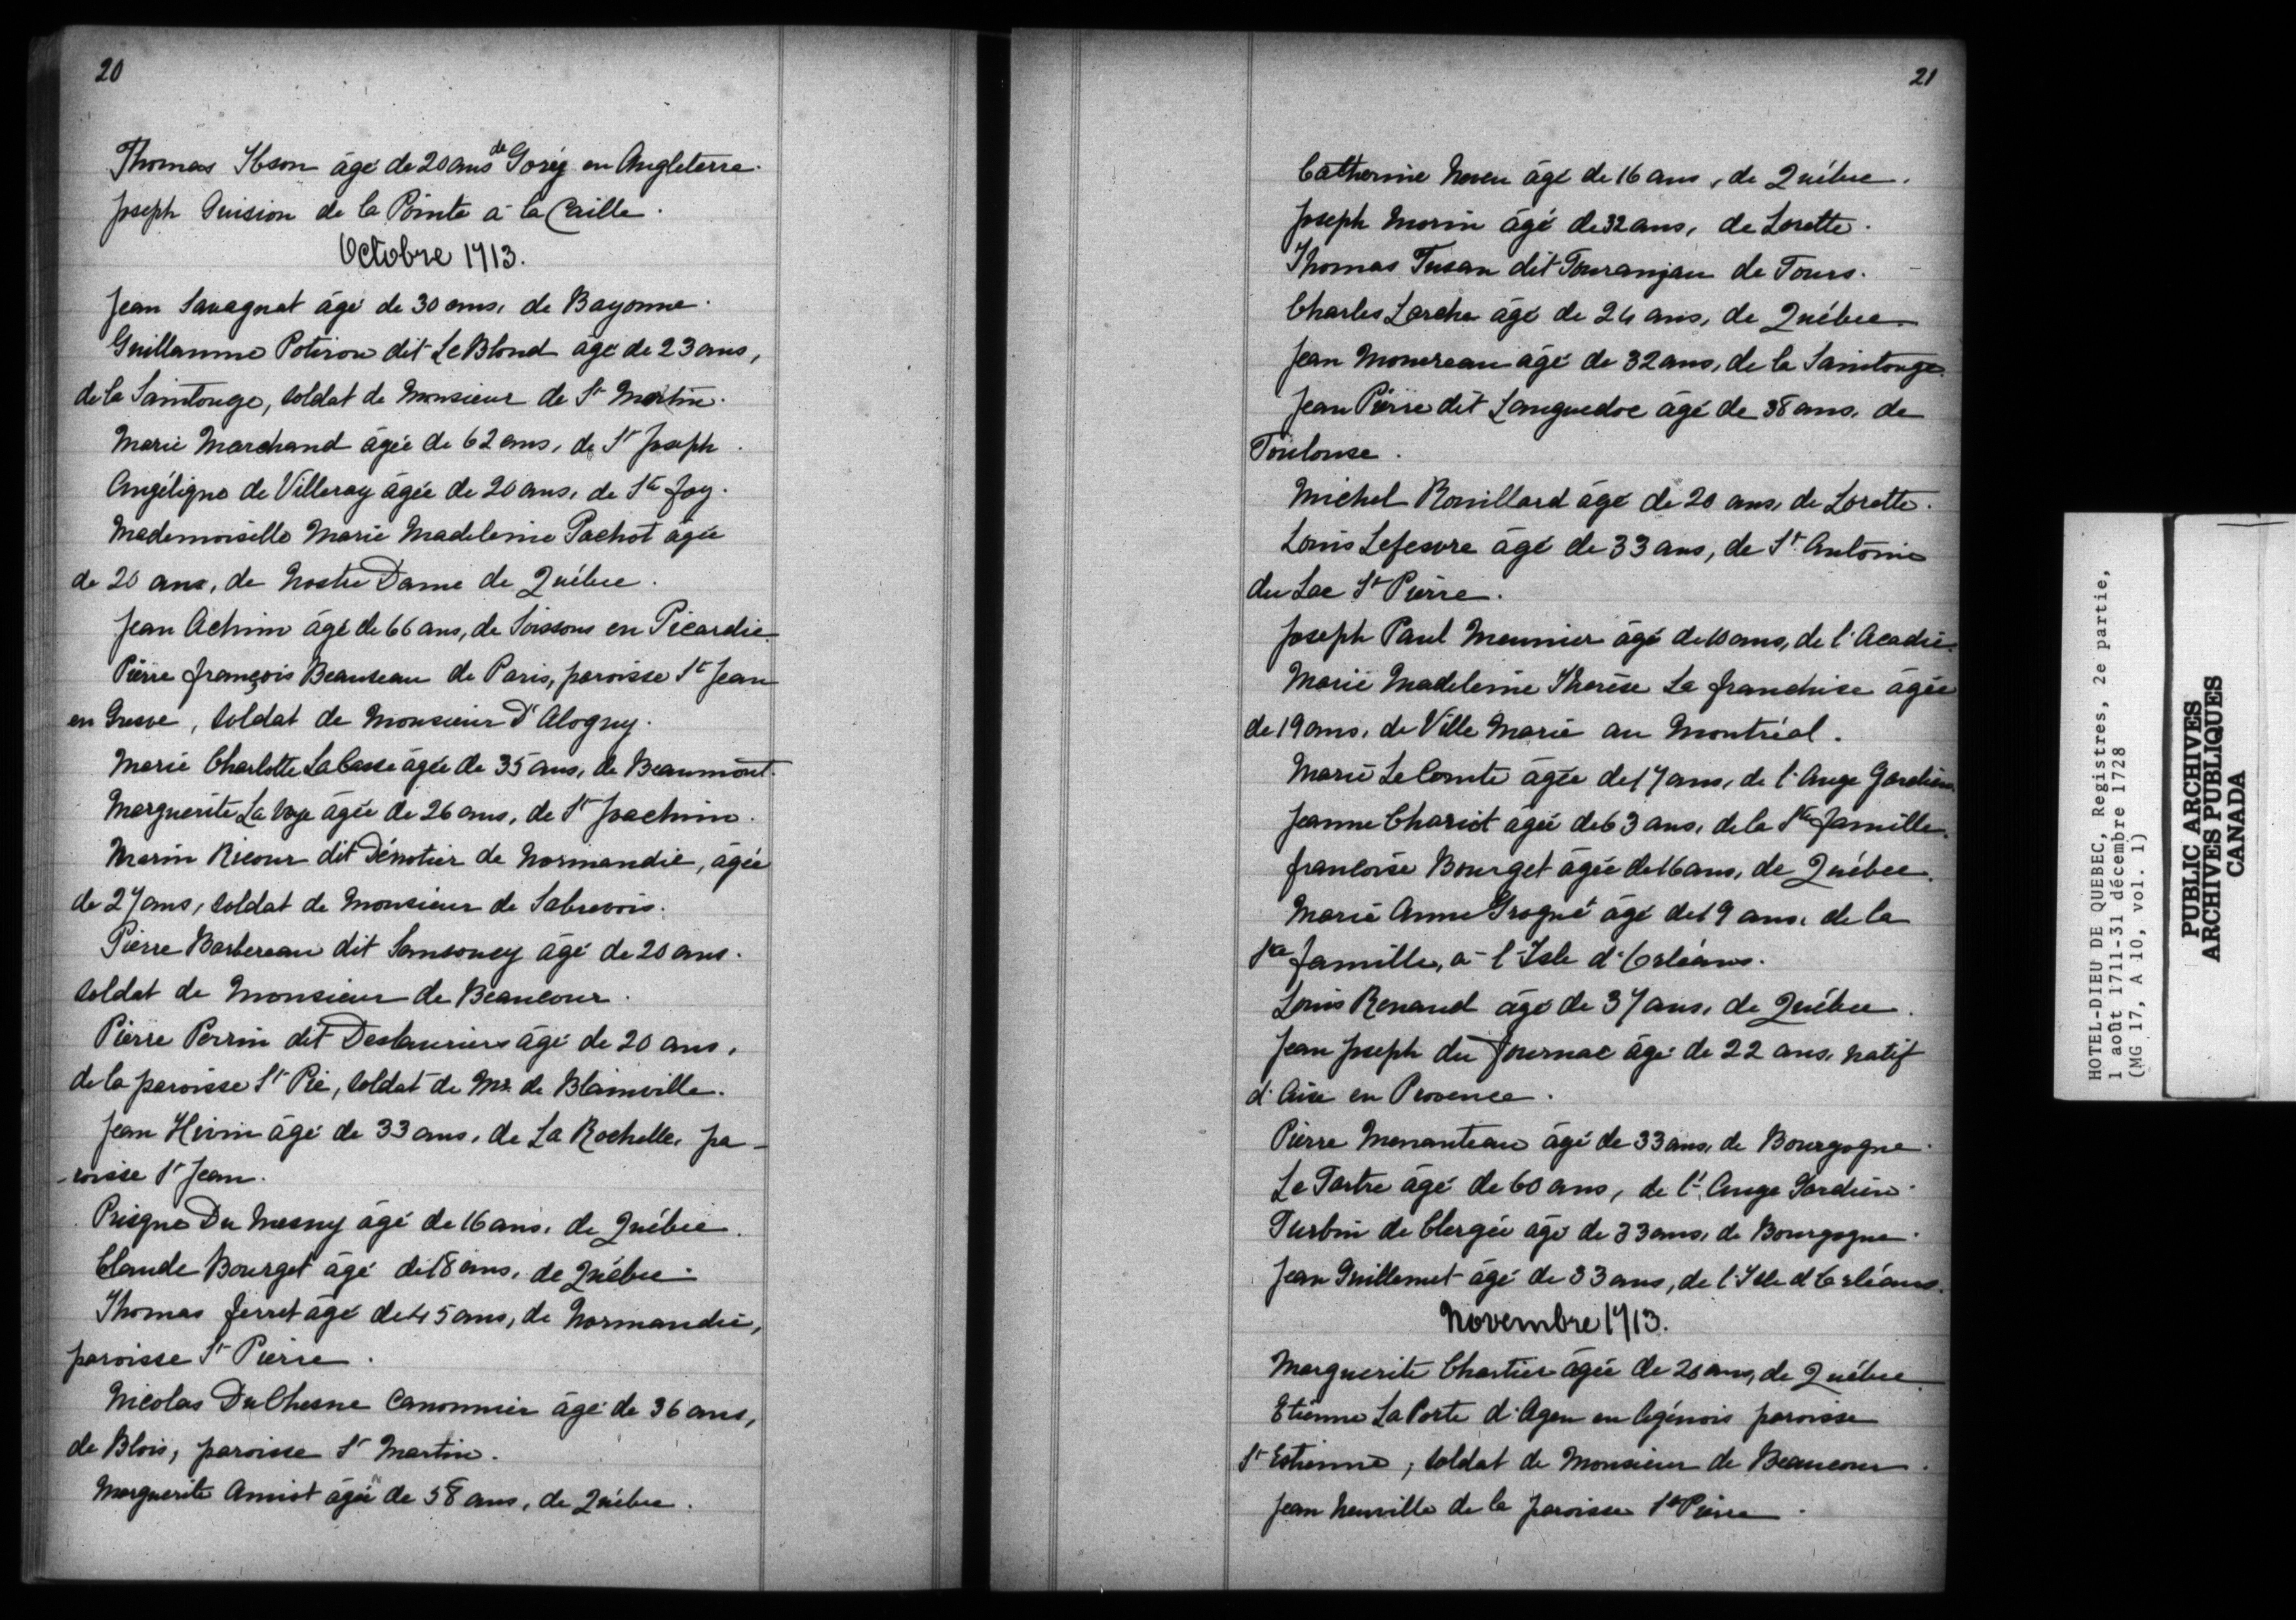 20
Thomas Ibson âgé de 20 ans de Goréy en Angleterre.
Joseph Guision de la Pointe à la Caille.
Octobre 1713.
Jean Savagnat âgé de 30 ans, de Bayonne.
Guillaume Potiron dit Le Blond âgé de 23 ans,
de la Saintonge, soldat de Monsieur de St Martin.
Marie Marchand âgée de 62 ans, de St Joseph.
Angélique de Villeray âgée de 20 ans, de Ste Foy.
Mademoiselle Marie Madeleine Pachot âgée
de 20 ans, de Nostre Dame de Québec.
Jean Achim âgé de 66 ans, de Soissons en Picardie.
Pierre François Beauseau de Paris, paroisse St Jean
en Gresve, soldat de Monsieur D'Alogny.
Marie Charlotte La Casse âgée de 35 ans, de Beaumont.
Marguerite La Voye âgée de 26 ans, de St Joachim.
Marin Ricour dit Dénotier de Normandie, âgée
de 27 ans, soldat de Monsieur de Sabrevois.
Pierre Barbereau dit Sansoucy âgé de 20 ans.
soldat de Monsieur de Beaucour.
Pierre Perrin dit Deslauriers âgé de 20 ans,
de la paroisse St Pié, soldat de Mr. de Blainville.
Jean Hivin âgé de 33 ans, de La Rochelle, pa-
-roisse St Jean.
Prisque Du Mesny âgé de 16 ans, de Québec.
Claude Bourget âgé de 18 ans, de Québec.
Thomas Ferret âgé de 45 ans, de Normandie,
paroisse St Pierre.
Nicolas DuChesne canonnier âgé de 36 ans,
de Blois, paroisse St Martin.
Marguerite Amiot âgée de 58 ans, de Québec.
21
Catherine Neveu âgé de 16 ans, de Québec.
Joseph Morin âgé de 32 ans, de Lorette.
Thomas Tusan dit Touranjau de Tours.
Charles Larche âgé de 24 ans, de Québec.
Jean Mouereau âgé de 32 ans, de la Saintonge.
Jean Pierre dit Languedoc âgé de 38 ans, de
Toulouse.
Michel Rouillard âgé de 20 ans, de Lorette.
Louis Lefesvre âgé de 33 ans, de St Antoine
du Lac St Pierre.
Joseph Paul Meunier âgé de 10 ans, de l'Acadie.
Marie Madeleine Therèse La Franchise âgée
de 19 ans, de Ville Marie au Montréal.
Marie Le Comte âgée de 17 ans, de l'Ange Gardien.
Jeanne Chariot âgée de 63 ans, de la Ste Famille.
Françoise Bourget âgée de 16 ans, de Québec.
Marie Anne Grogné âgé de 19 ans, de la
Ste Famille, à l'Isle d'Orléans.
Louis Renaud âgé de 37 ans, de Québec.
Jean Joseph du Journac âgé de 22 ans, natif
d'Aix en Provence.
Pierre Menanteau âgé de 33 ans, de Bourgogne.
Le Tartre âgé de 60 ans, de l'Ange Gardien.
Turbin de Clergée âgé de 33 ans, de Bourgogne.
Jean Guillemet âgé de 33 ans, de l'Isle d'Orléans.
Novembre 1713.
Marguerite Chartier âgée de 20 ans, de Québec.
Etienne La Porte d'Agen en Agénois paroisse
St Estienne, soldat de Monsieur de Beaucour.
Jean Neuville de la paroisse St Pierre.
HOTEL-DIEU DE QUEBEC, Registres, 2e partie,
1 août 1711-31 décembre 1728
(MG 17, A 10, vol. 1)
PUBLIC ARCHIVES
ARCHIVES PUBLIQUES
CANADA